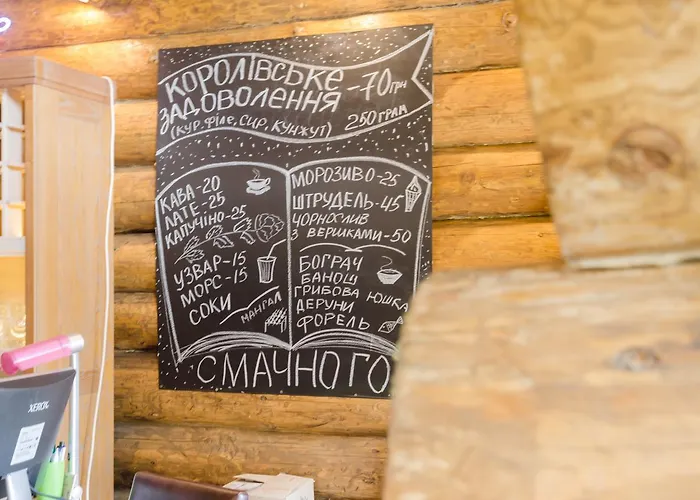 КОРОЛІВСЬКЕ
ЗАДОВОЛЕННЯ
-70 грн
(КУР. ФІЛЕ, СИР, КУНЖУТ)
250 ГРАМ
КАВА-20
ЛАТЕ-25
КАПУЧІНО-25
УЗВАР-15
МОРС-15
СОКИ
МАНГАЛ
МОРОЗИВО-25
ШТРУДЕЛЬ-45
ЧОРНОСЛИВ
З ВЕРШКАМИ-50
БОГРАЧ
БАНОШ
ГРИБОВА ЮШКА
ДЕРУНИ
ФОРЕЛЬ
СМАЧНОГО
XEROX